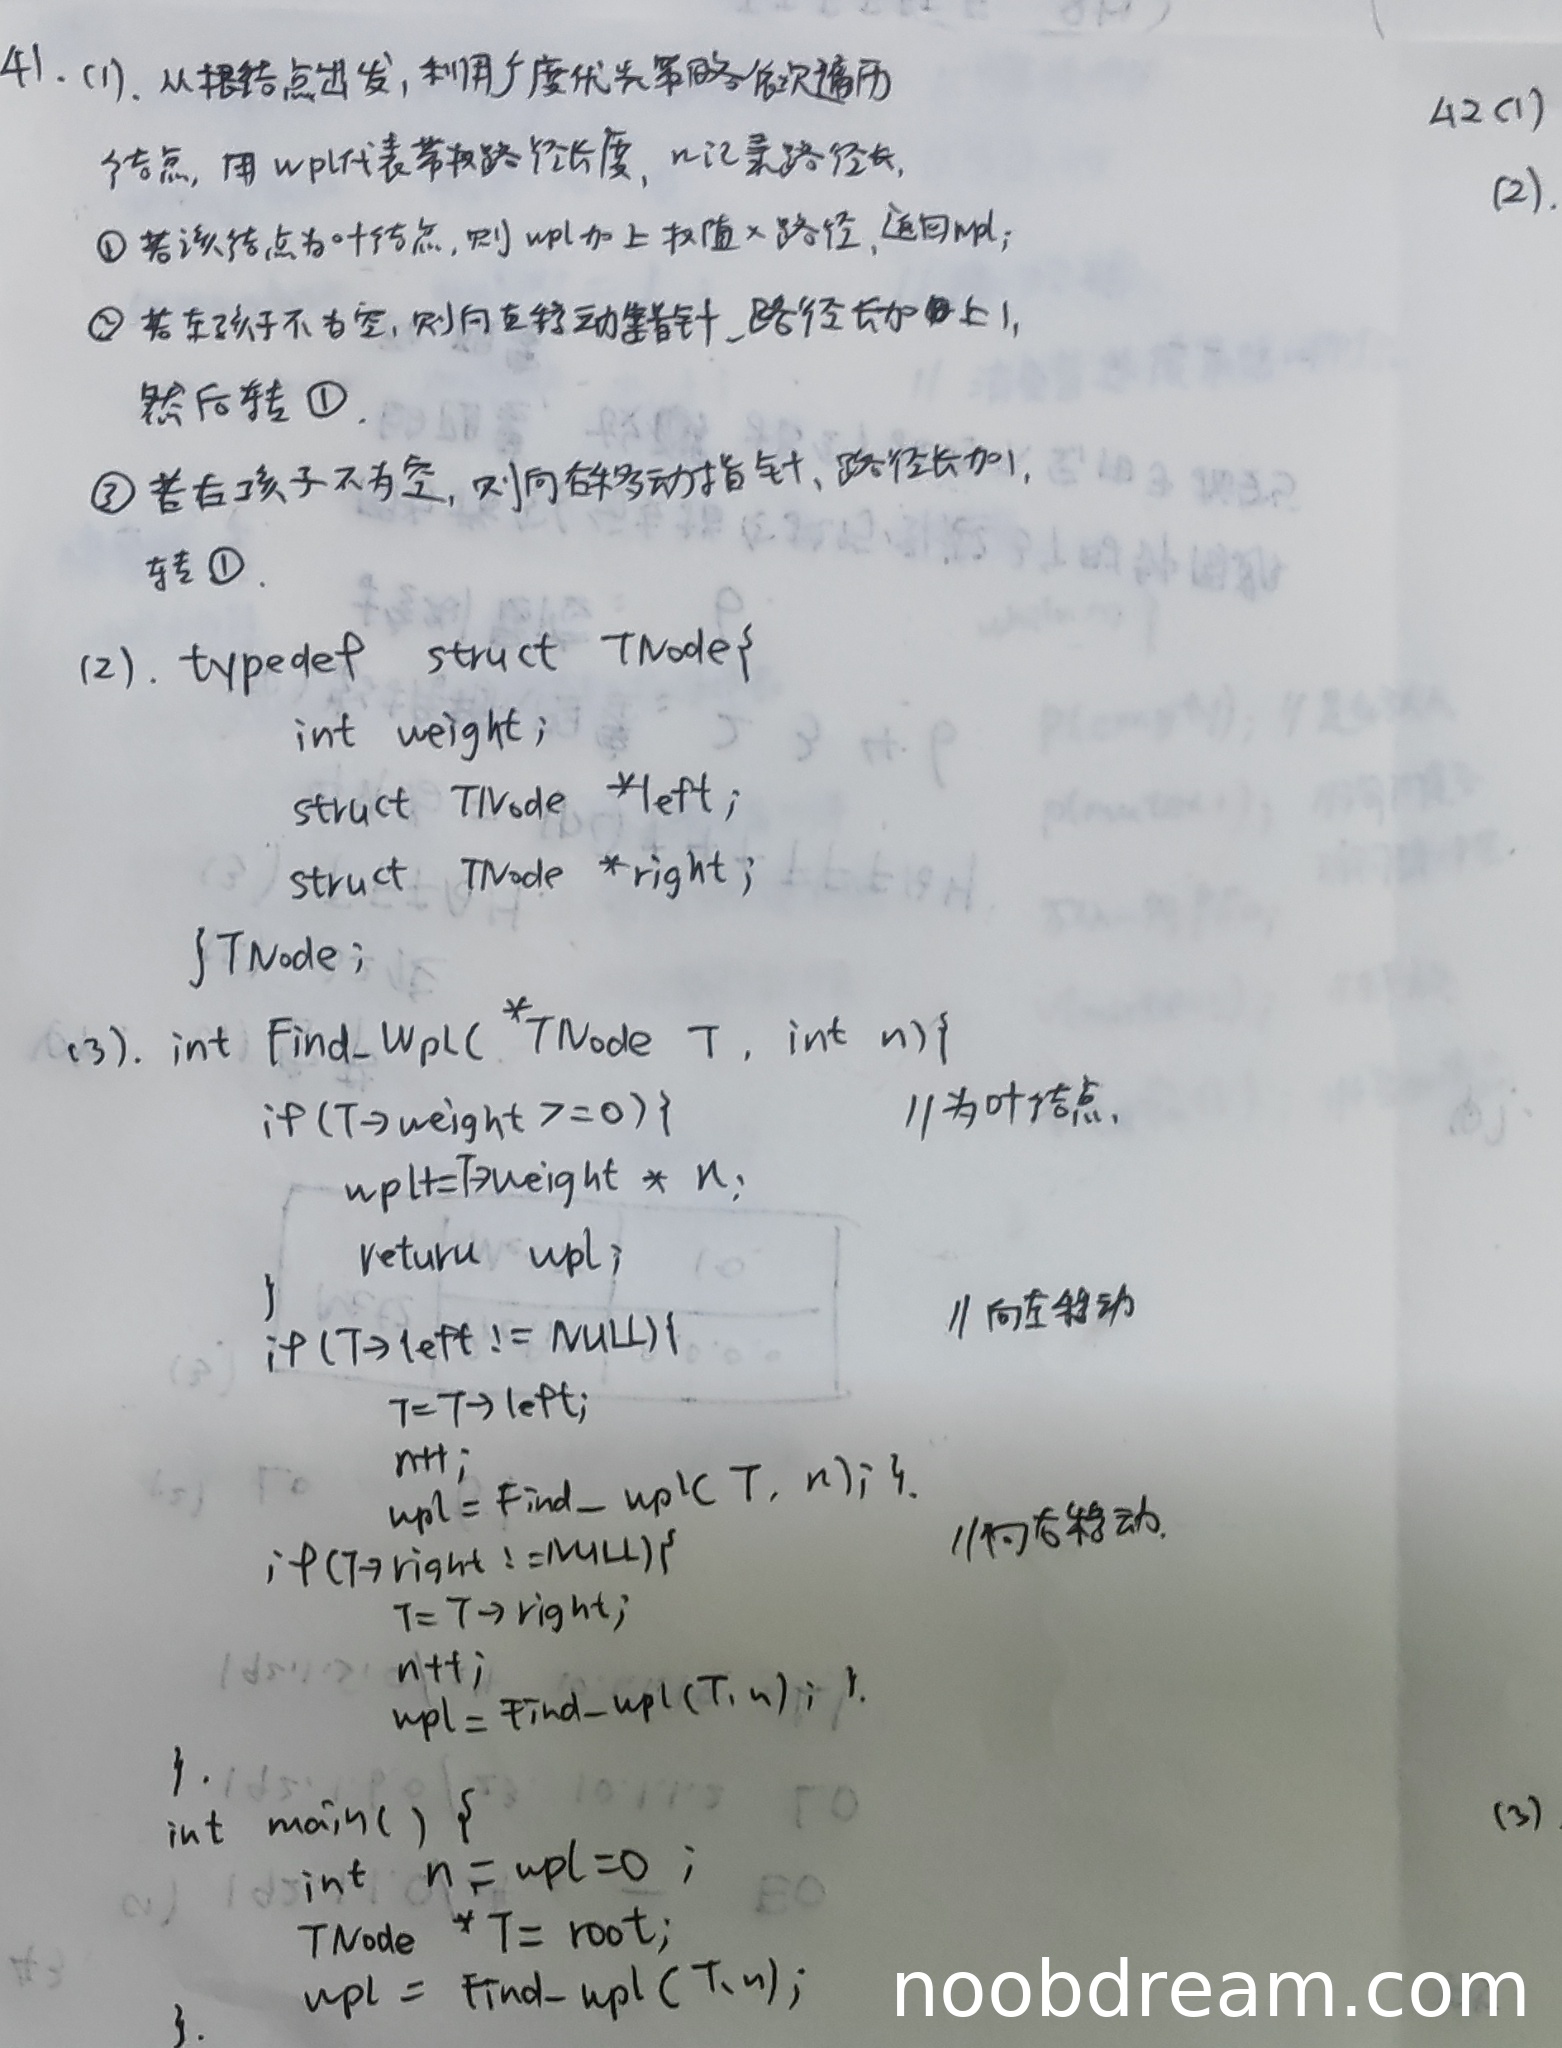 41. (1). 从根结点出发, 利用广度优先策略依次遍历
结点, 用wpl代表带权路径长度, n记录路径长,
① 若该结点为叶结点, 则wpl加上权值×路径, 返回wpl;
② 若左孩子不为空, 则向左移动指针、路径长加上1,
然后转①.
③ 若右孩子不为空, 则向右移动指针、路径长加1,
转①.
(2). typedef struct TNode{
int weight;
struct TNode *left;
struct TNode *right;
}TNode;
(3). int Find_Wpl( *TNode T, int n){
if(T→weight >=0){ //为叶结点.
wpl+=T→weight * n;
return wpl;
}
if(T→left != NULL){ //向左移动
T=T→left;
n++;
wpl = Find_wpl( T, n); }.
if(T→right !=NULL){ //向右移动.
T= T→right;
n++;
wpl = Find_wpl(T, n); }.
}.
int main() {
int n = wpl=0 ;
TNode *T= root;
wpl = Find_wpl( T, n);
}.
42 (1)
(2).
(3).
noobdream.com